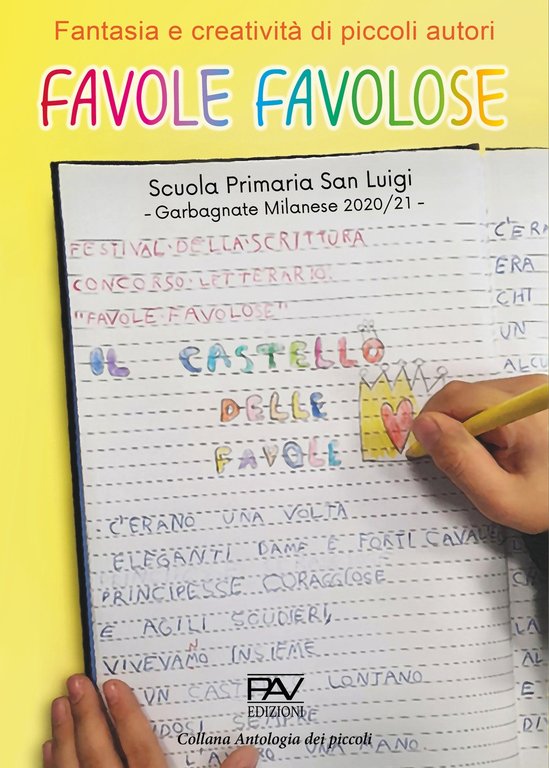 Fantasia e creatività di piccoli autori
FAVOLE FAVOLOSE
Scuola Primaria San Luigi
- Garbagnate Milanese 2020/21 -
FESTIVAL·DELLA·SCRITTURA
CONCORSO·LETTERARIO:
"FAVOLE·FAVOLOSE"
IL CASTELLO
DELLE
FAVOLE
C'ERANO UNA VOLTA
ELEGANTI DAME E FORTI
PRINCIPESSE CORAGGIOSE
E AGILI SCUDIERI,
VIVEVANO INSIEME
UN LONTANO
SEMPRE
UNA MANO.
ERA
CHI
UN
PAV
EDIZIONI
Collana Antologia dei piccoli